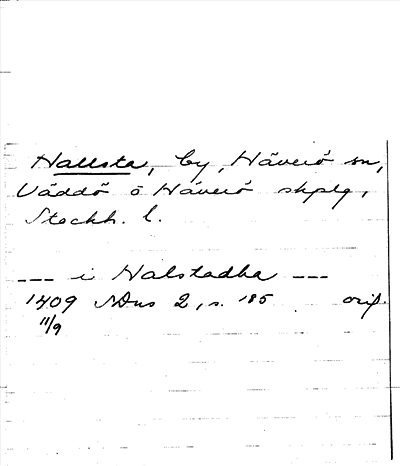 Hallsta, by, Häverö sn,
Väddö o Häverö skplg,
Stockh. l.
--- i Halstadha ---
1409 SDns 2, s. 185 orig.
11/9